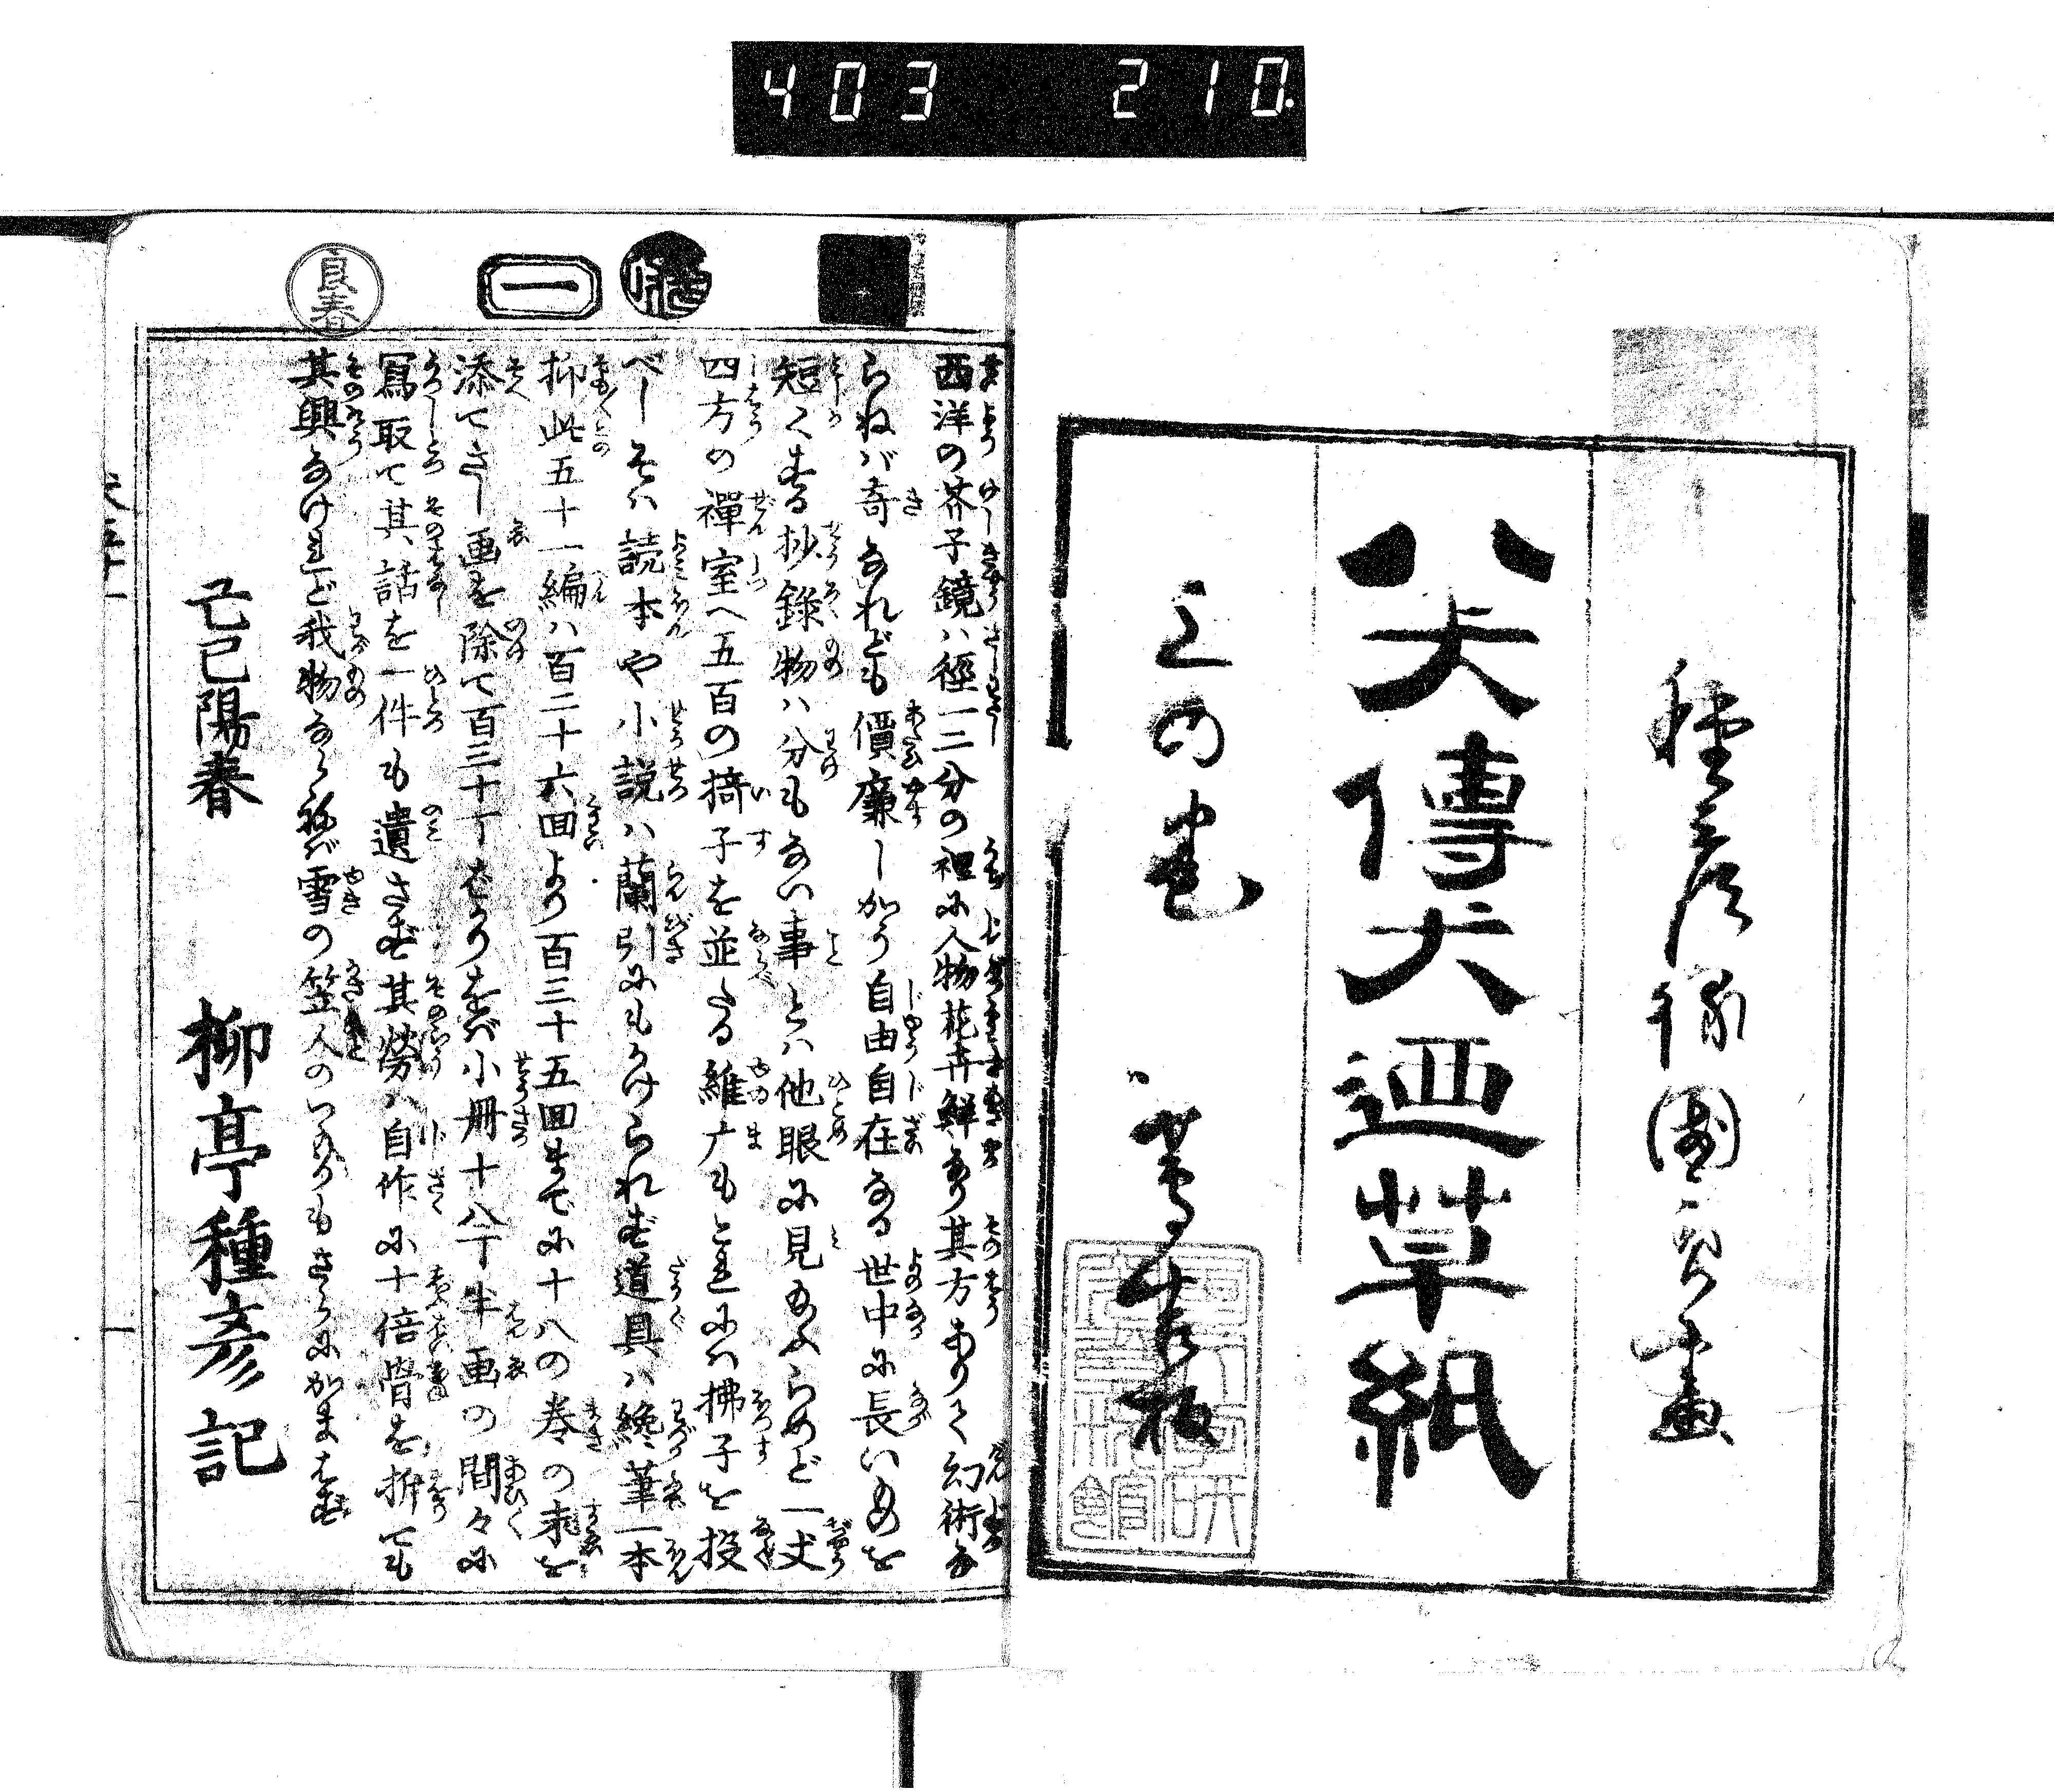 403 210.
種彦録 國貞画
八犬傳犬廼草紙
上の巻 蔦吉板
西洋の芥子鏡ハ徑一二分の裡に人物花卉鮮あり其方ありく幻術な
らねバ奇なれども價廉しかう自由自在なる世中に長いものを
短くする抄録物ハ分もない事とハ他眼に見もふらめど一丈
四方の禪室へ五百の掎子を並たる維广もこれにハ拂子を投
べしそハ読本や小説ハ蘭引にもかけられず道具ハ纔筆一本
抑此五十一編ハ百二十六回より百三十五回までに十八の巻の末を
添てさし画を除て百三十丁をかりを小冊十八丁半画の間々に
寫取て其話を一件も遺さず其勞ハ自作に十倍皆を折ても
其興なけれど我物ならねバ雪の笠人のいのりもさらにかまはず
己巳陽春 柳亭種彦記
一
良春
犬五十一
一